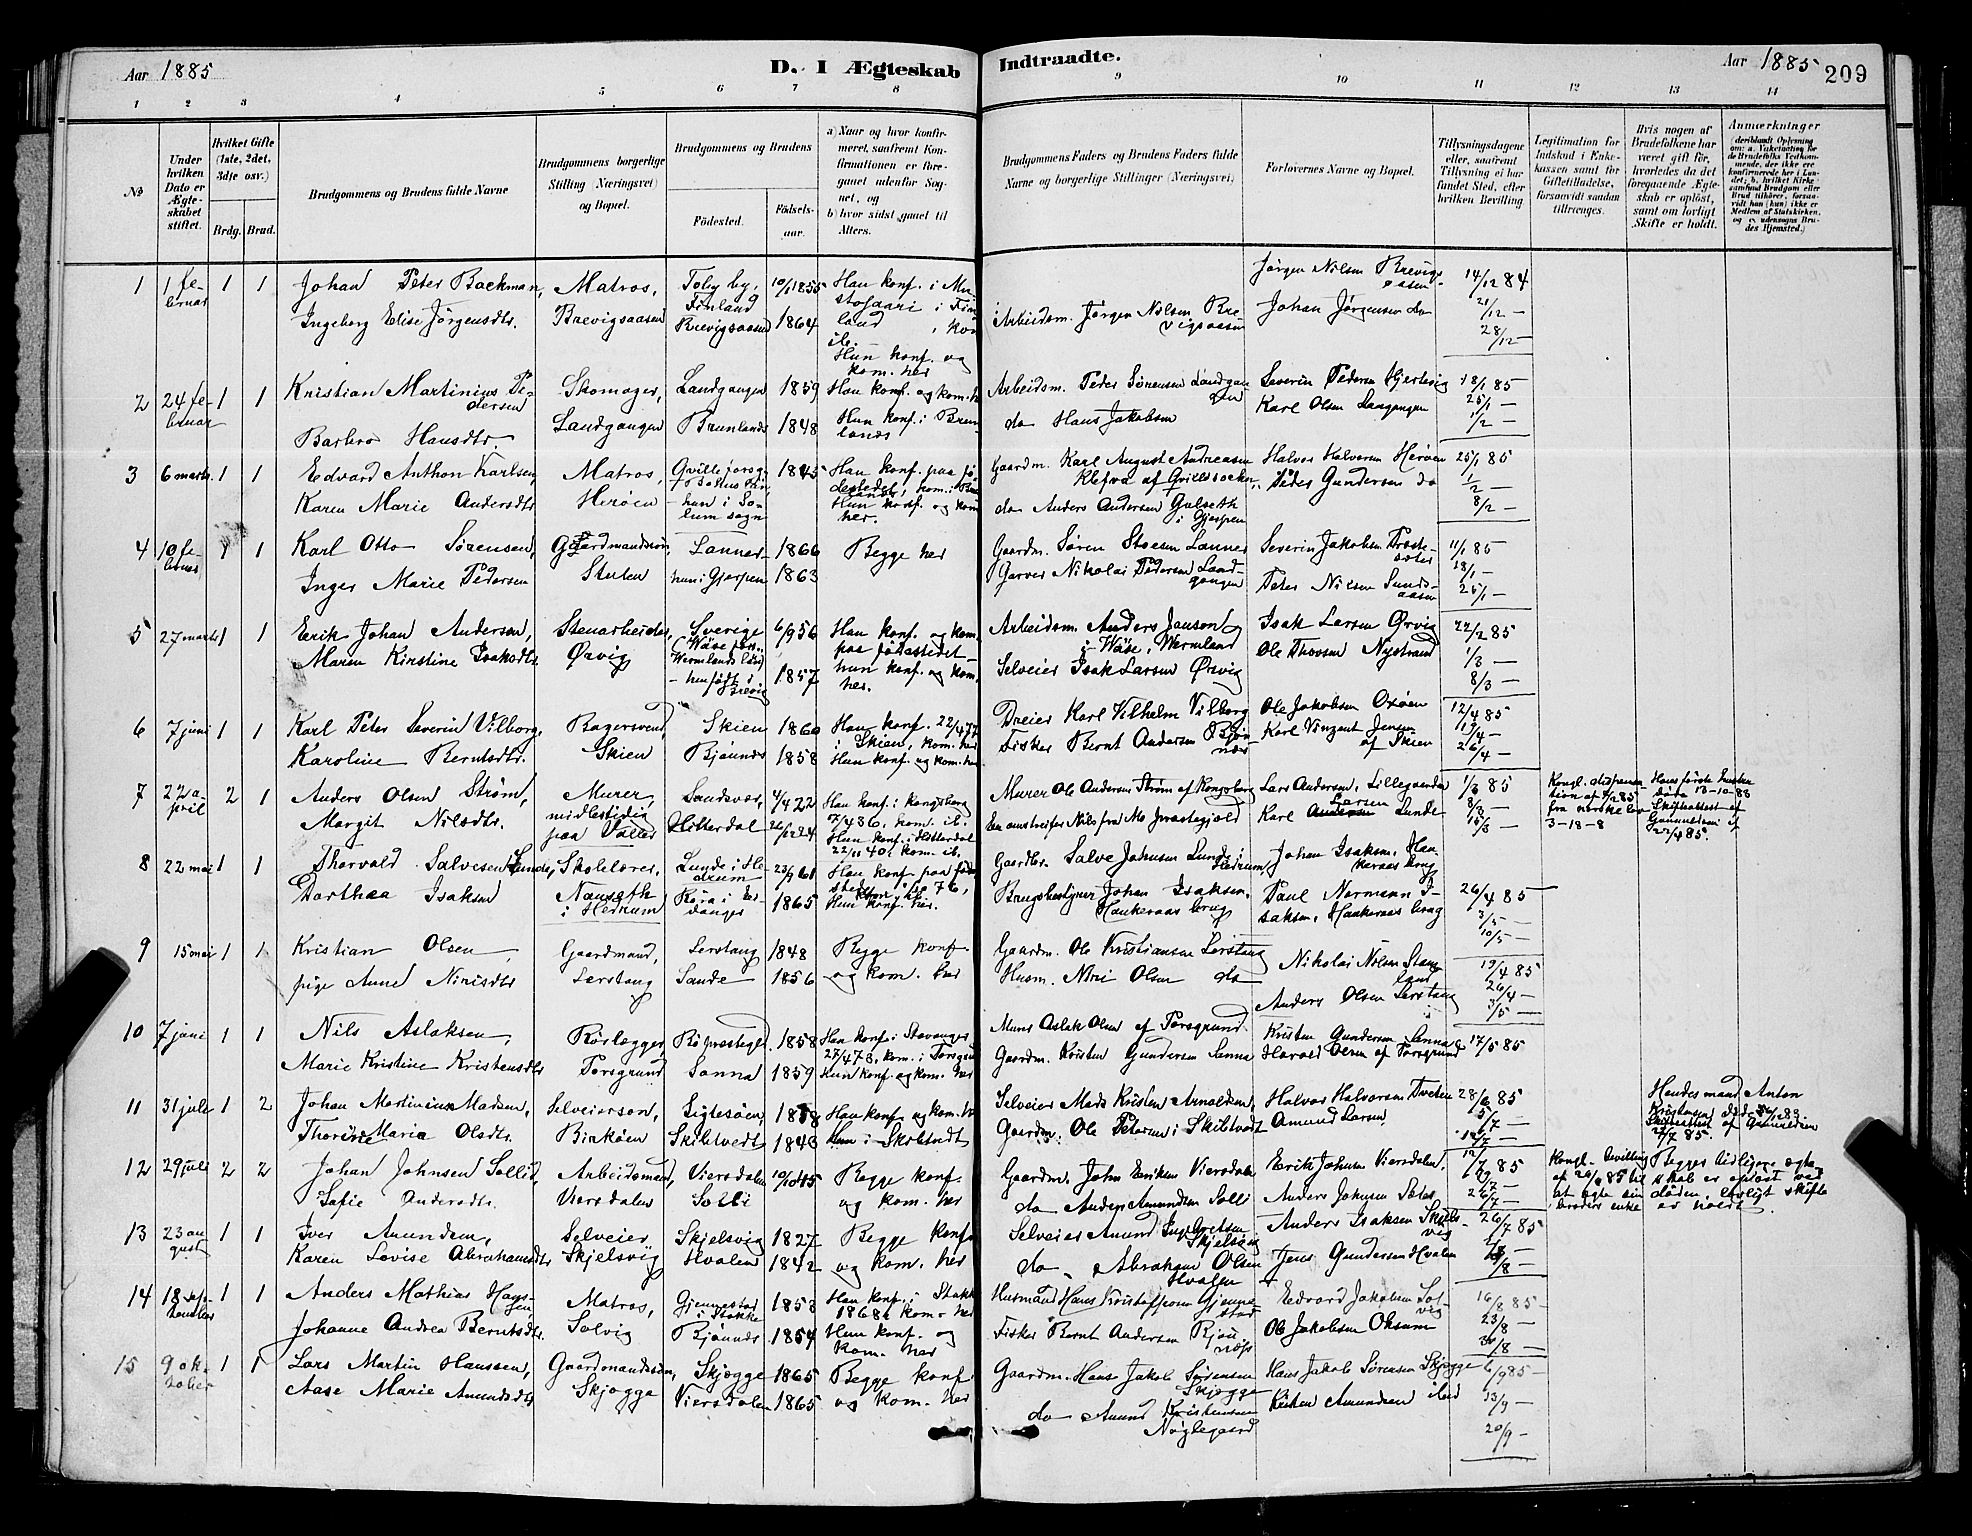 Aar 1885
D. I Ægteskab Indtraadte.
Aar 1885
209
1 2 3 4 5 6 7 8 9 10 11 12 13 14
No
Under hvilken Dato er Ægteskabet stiftet.
Hvilket Gifte (1ste, 2det, 3die osv.)
Brdg. Brud.
Brudgommens og Brudens fulde Navne
Brudgommens borgerlige Stilling (Næringsvei) og Bopæl.
Brudgommens og Brudens
Fødested.
Fødselsaar.
a) Naar og hvor konfirmeret, saafremt Konfirmationen er foregaaet udenfor Sognet, og
b) hvor sidst gaaet til Alters.
Brudgommens Faders og Brudens Faders fulde Navne og borgerlige Stillinger (Næringsvei)
Forlovernes Navne og Bopæl.
Tillysningsdagene eller, saafremt Tillysning ei har fundet Sted, efter hvilken Bevilling.
Legitimation for Indskud i Enkekassen samt for Giftetilladelse, forsaavidt saadan tiltrænges.
Hvis nogen af Brudefolkene har været gift før, hvorledes da det foregaaende Ægteskab er opløst, samt om lovligt Skifte er holdt.
Anmærkninger
1 1 februar 1 1 Johan Peter Backman, Matros, Toby by, Finland 10/1 1855 Han konf. i Mu-
Jørgen Nilsen Brevigsaasen 14/12 84
Ingeborg Elise Jørgensdtr. Brevigsaasen Brevigsaasen 1864 Hun konf. og kom. her
Arbeidsm. Jørgen Nilsen Brevigsaasen Johan Jørgensen do 21/12 — 28/12 —
2 24 februar 1 1 Kristian Martinius Pedersen Skomager, Landgangen 1859 Han konf. og kom. her
Arbeidsm. Peder Sørensen Landgangen Severin Pedersen Hjertvig 18/1 85
Barbro Hansdtr. Landgangen Brunlands 1848 Hun konf. i Brunlands
do Hans Jakobsen Karl Olsen Langangen 25/1 — 1/2 —
3 6 marts 1 1 Edvard Anthon Karlsen, Matros, 1845 Han konf. paa fødestedet, kom. i
Gaardm. Karl August Andreasen Halvor Halvorsen Herøen 25/1 85
Karen Marie Andersdtr. Herøen hun i Solum sogn Hun konf. og kom her.
do Anders Andersen Gulseth i Gjerpen Peder Gundersen do 1/2 — 8/2 —
4 10 februar 1 1 Karl Otto Sørensen, Gaardmandssøn, Lanner 1866 Begge her
Gaardm. Søren Lanner Severin Jakobsen 11/1 85
Inger Marie Pedersen Stulen hun i Gjerpen 1863
Garver Nikolai Pedersen Landgangen Peter Nilsen Sundsaasen 18/1 — 25/1 —
5 27 marts 1 1 Erik Johan Andersen, Stenarbeider, Sverige (Wäse Wermlands län) 6/9 56 Han konf. og kom. paa fødestedet
Arbeidsm. Anders Janson i Wäse, Wermland Isak Larsen Ørvig 22/2 85
Maren Kirstine Isaksdtr. Ørvig hun født i Brevig 1857 hun konf. og kom. her.
Selveier Isak Larsen Ørvig Ole Thovsen Nystrand 1/3 — 8/3 —
6 7 juni 1 1 Karl Peter Severin Vilborg, Bagersvend, Skien 1860 Han konf. 22/4 77 i Skien, kom. her
Dreier Karl Vilhelm Vilborg Ole Jakobsen Oxøen 12/4 85
Karoline Berntsdtr. Skien Bjønnes 1858 Hun konf. og kom. her
Fisker Bernt Andersen Bjønnæs Karl Vinzent Jensen af Skien 19/4 — 26/4 —
7 22 april 2 1 Anders Olsen Strøm, Murer, Sandsvær, 4/4 22 Han konf. i Kongsberg 7/4 36, kom. ib.
Murer Ole Andersen Strøm af Kongsberg Lars Andersen, Lillegaarden 1/3 85
Margit Nilsdtr. midlertidig paa Valler Hitterdal 26/12 24 Hun konf. i Hitterdal 22/11 40, kom. ib.
Karl Larsen Lunde 8/3 — 15/3 —
Kongl. dispensation af 7/2 85 fra norske lov 3-18-8
Hans første hustru døde 13-10-83 Skifteattest af Gunnulsen af 22/4 85.
8 22 mai 1 1 Thorvald Salvesen Lunde, Skolelærer, Lunde i Hedrum 23/9 61 Han konf. paa føde-
Gaardbr. Salve Johnsen Lunde i Hedrum Johan Isaksen, Haukeraas brug
Dorthea Isaksen Nauseth i Hedrum Røra i Eidanger 1865 Hun konf. her.
Brugsbestyrer Johan Isaksen, Haukeraas brug Paul Normann Isaksen, Haukeraas brug 26/4 85 3/5 — 10/5 —
9 15 mai 1 1 Kristian Olsen, Gaardmand, Lerstang 1848 Begge konf. og kom. her
Gaardm. Ole Kristiansen Lerstang Nikolai Nilsen Stangland 19/4 85
pige Anne Nirisdtr Lerstang Sande 1856
Husm. Niri Olsen do Anders Olsen Lerstang 26/4 — 3/5 —
10 7 juni 1 1 Nils Aslaksen, Rørlægger 1858 Han konf. i Stavanger 27/4 73, kom. i Porsgrund
Murs Aslak Olsen af Porsgrund Kristen Gundersen Sanna 17/5 85
Marie Kristine Kristensdtr Porsgrund Sanna 1859 Hun konf. og kom. her
Gaardm. Kristen Gundersen Sanna Harald Olsen af Porsgrund
11 31 juli 1 2 Johan Martinius Madsen, Selveiersøn, Sigtesøen, 1858 Han konf. og kom. her
Selveier Mads Kristen Arnoldsen, Halvor Halvorsen Tveten 28/6 85
Thorine Maria Olsdtr. Birkøen Skilttvedt 1843 Hun i Skoltvedt
Gaardm. Ole Petersen i Skiltvedt Amund Larsen 5/7 — 12/7 —
Hendes mand Anton Kristensen død 26/12 83. Skifteattest af Gunnulsen 27/7 85.
12 29 juli 2 2 Johan Johnsen Sollid, Arbeidsmand, Viersdalen 10/10 45 Begge konf. og kom. her
Gaardm. John Eriksen Viersdalen Erik Johnsen Viersdalen, 12/7 85
Sofie Andersdtr. Viersdalen Solli
do Anders Amundsen Solli Anders Johnsen 19/7 — 26/7 —
Kongl. bevilling af 20/6 85 til at ægte sin broders enke
Begges tidligere ægteskab er opløst ved døden, lovligt skifte er holdt.
13 23 august 1 1 Iver Amundsen, Selveier, Skjelsvig 1827 Begge konf. og kom. her
Selveier Amund Ingebretsen Skjelsvig Anders Isaksen Skjelsvig 26/7 85
Karen Lovise Abrahamsdtr Skjelsvig Hvalen 1842
do Abraham Olsen Hvalen Jens Gundersen Hvalen 2/8 — 9/8 —
14 18 september 1 1 Anders Mathias Hansen Matros, Gjennestad i Stokke 1858 Han konf. i Stokke 1868, kom. her
Husmand Hans Kristoffersen Gjennestad Edvard Jakobsen Solvig 16/8 85
Johanne Andrea Berntsdtr. Solvig Bjønnes 1854 Hun konf. og kom. her
Fisker Bernt Andersen Bjønnæs Ole Jakobsen Oksum 23/8 — 30/8 —
15 9 oktober 1 1 Lars Martin Hanssen, Gaardmandssøn, Skjøgge 1865 Begge konf. og kom. her
Gaardm. Hans Jakob Sørensen Skjøgge Hans Jakob Sørensen Skjøgge 6/9 85 —
Aase Marie Amundsdtr Skjøgge Viersdalen 1865
do Amund Kristensen Nøglegaard Kristen Amundsen ibid 13/9 — 20/9 —